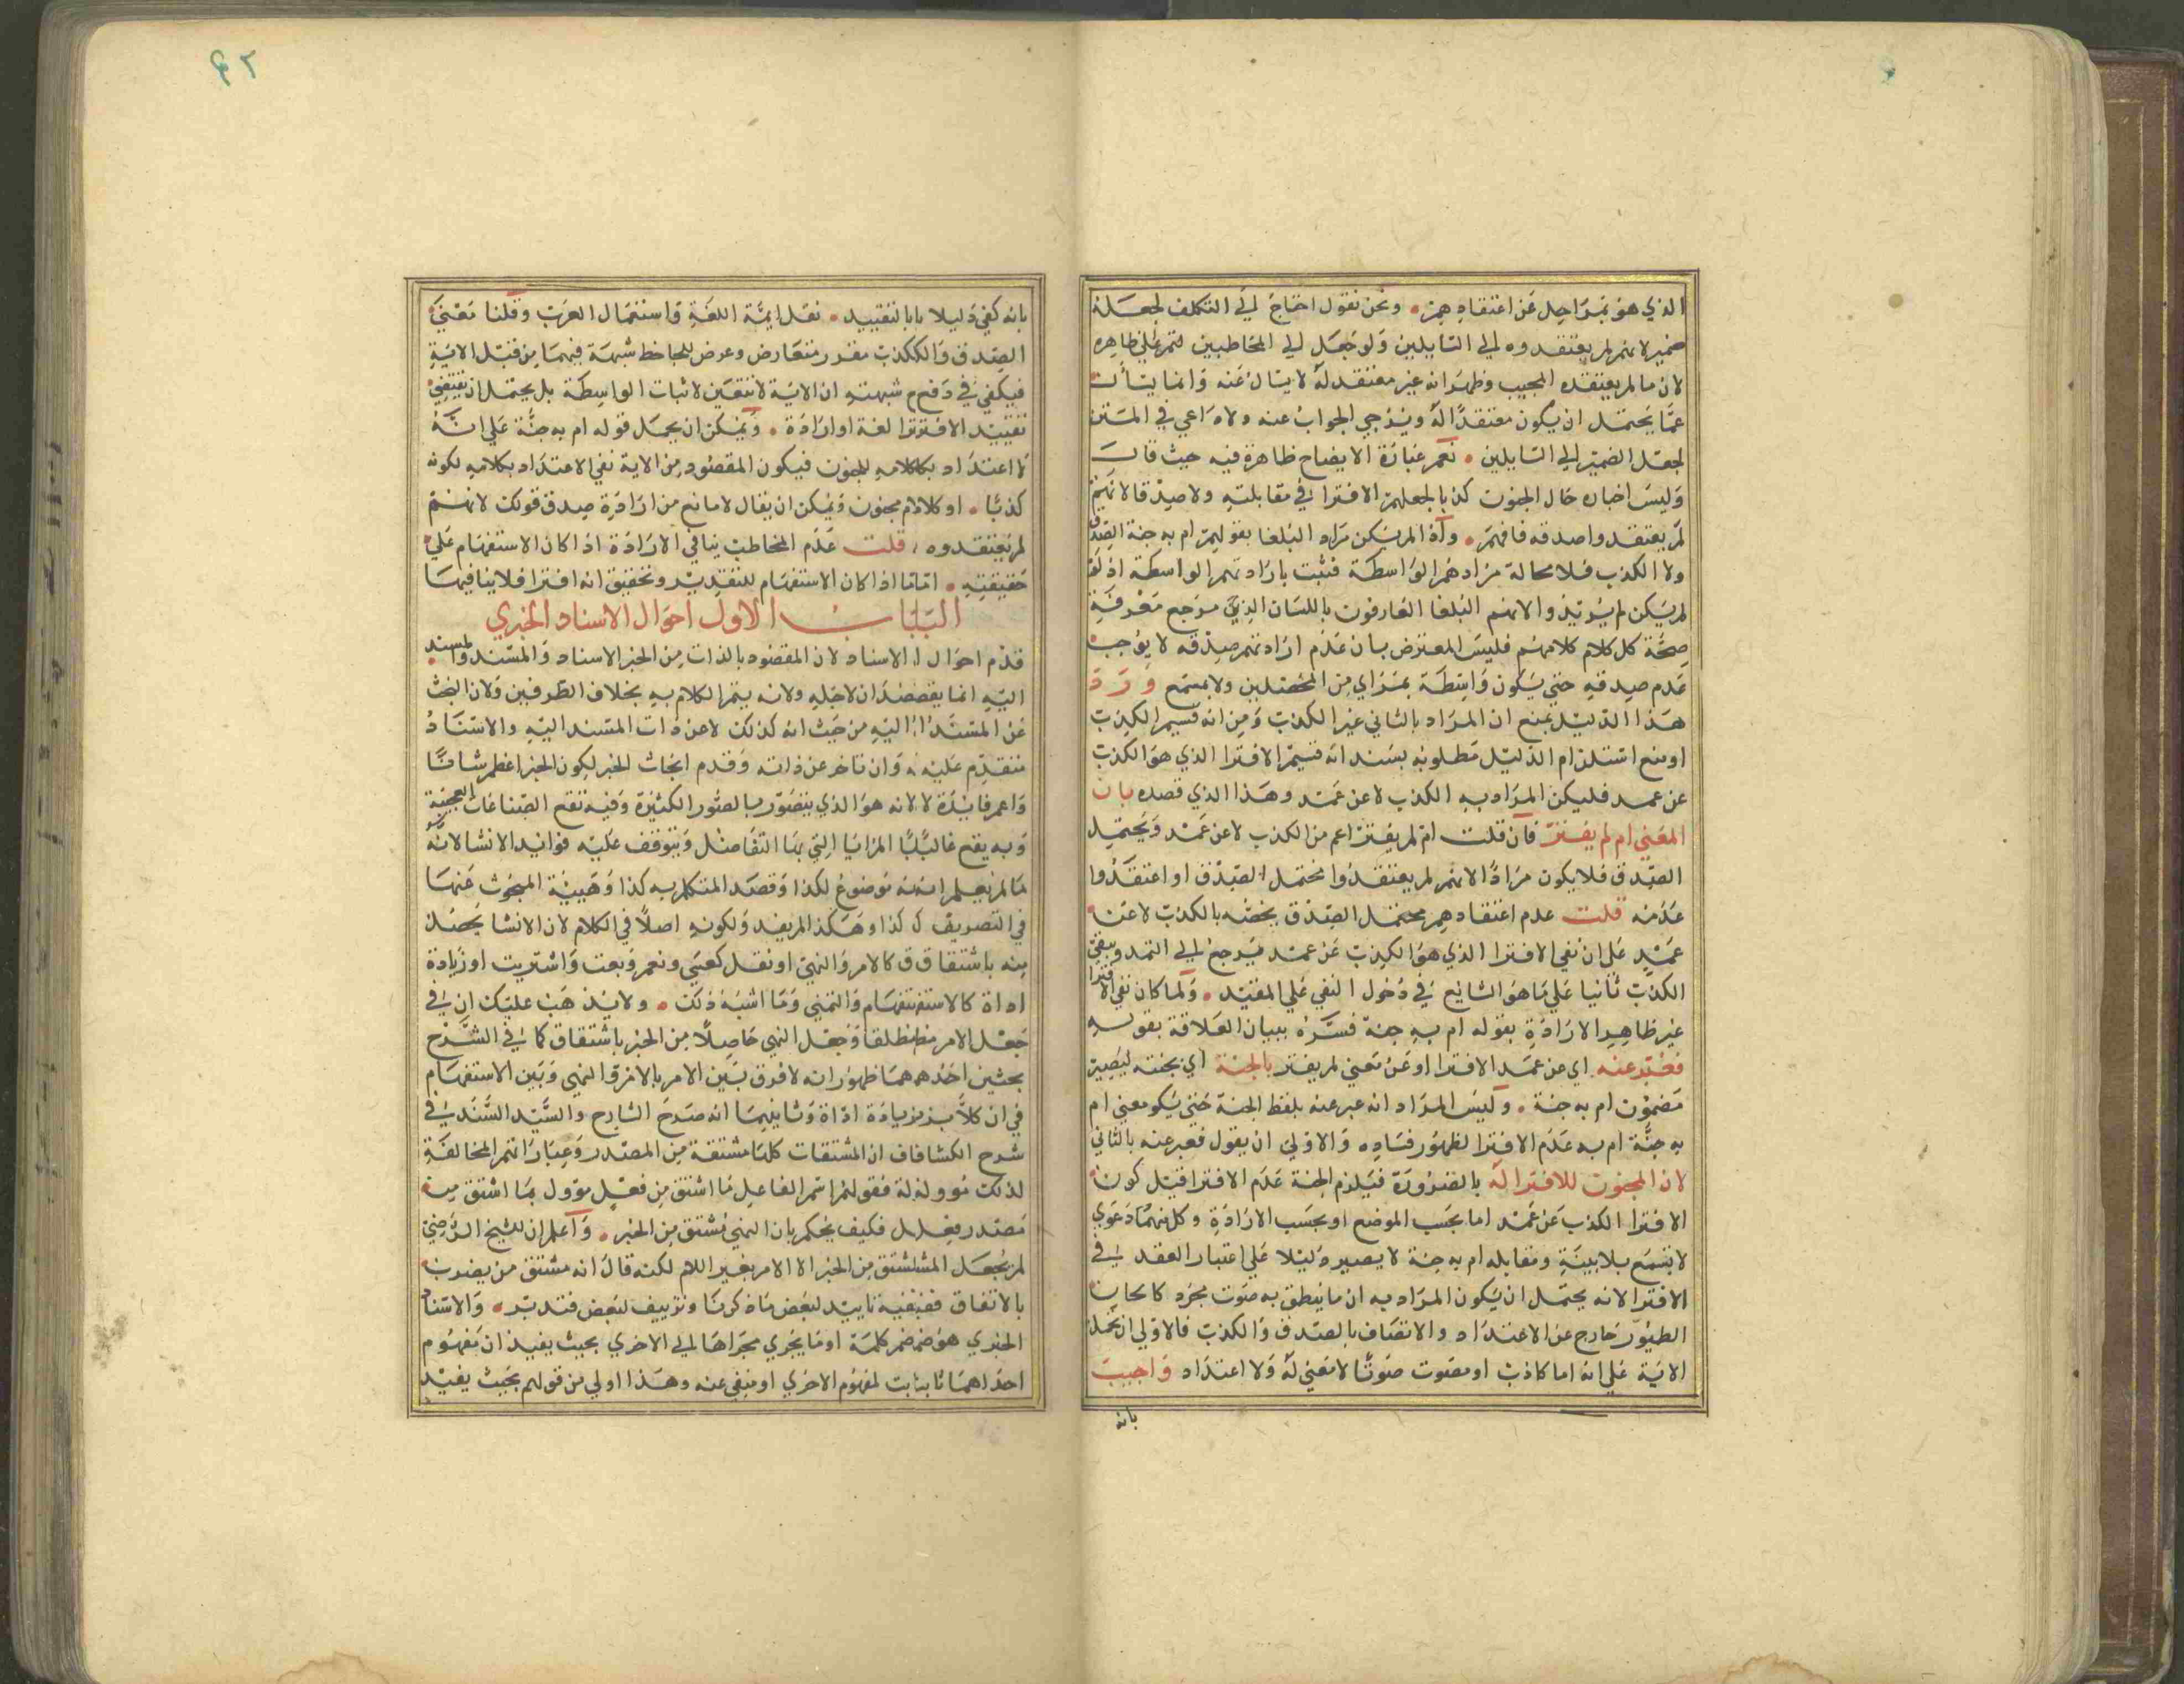 الذي هو بمراحل عن اعتقادهم ونحن نقول احتاج الي التكلف لجعله
ضمير لانهم لم يعتقدوه الي السايلين ولو جعل الي المخاطبين لتم علي ظاهره
لان ما لم يعتقده المجيب وظهر انه غير معتقد له لا يسال عنه وانما يسأل
عما يحتمل ان يكون معتقدا له ويرجي الجواب عنه ولا داعي في المتن
لجعل الضمير الي السايلين نعم عبارة الايضاح ظاهرة فيه حيث قال
وليس اخباره حال الجنون كذبا لجعلهم الافترا في مقابلته ولا صدقا لانهم
لم يعتقدوا صدقه فافهم واذا لم يكن مراد البلغا بقولهم ام به جنة الصدق
ولا الكذب فلا محالة مرادهم الواسطة فثبت بارادتهم الواسطة اذ لو
لم يكن لم يريدوا لانهم البلغا العارفون باللسان الذين مرجع معرفة
صحة كل كلام كلامهم فليس المعترض بان عدم ارادتهم صدقه لا يوجب
عدم صدقه حتي يكون واسطة بمراي من المحصلين ولا بمسمع ورد
هذا الدليل بمنع ان المراد بالثاني غير الكذب ومن انه قسيم الكذب
او منع استلزام الدليل مطلوبه بسند انه قسيم الافترا الذي هو الكذب
عن عمد فليكن المراد به الكذب لا عن عمد وهذا الذي قصده بان
المعني ام لم يفتر فان قلت ام لم يفتر اعم من الكذب لا عن عمد ويحتمل
الصدق فلا يكون مرادا لانهم لم يعتقدوا محتمل الصدق او اعتقدوا
عدمه قلت عدم اعتقادهم محتمل الصدق يخصه بالكذب لا عن
عمد علي ان نفي الافترا الذي هو الكذب عن عمد يرجع الي العمد ويبقي
الكذب ثانيا علي ما هو الشايع في دخول النفي علي المقيد ولما كان نفي الافترا
غير ظاهر الارادة بقوله ام به جنة فسره ببيان العلاقة بقوله
فعبر عنه اي عن عمد الافترا او عن معني لم يفتر بالجنة اي بجنته ليصير
مضمون ام به جنة وليس المراد انه عبر عنه بلفظ الجنة حتي يكو معني ام
به جنة ام به عدم الافترا لظهور فساده والاولي ان يقول فعبر عنه بالثاني
لان المجنون لا افترا له بالضرورة فيلزم الجنة عدم الافترا قيل كون
الافترا الكذب عن عمد اما بحسب الموضع او بحسب الارادة وكل منهما دعوي
لا تسمع بلا بينة ومقابله ام به جنة لا يصير دليلا علي اعتبار العقد في
الافترا لانه يحتمل ان يكون المراد به ان ما ينطق به صوت مجرد كالحان
الطيور خارج عن الاعتداد والاتصاف بالصدق والكذب فالاولي ان يحمل
الاية علي انه اما كاذب او مصوت صوتا لا معني له ولا اعتداد واجيب
بانه
٤٢
بانه كفي دليلا بابا لتقييد نقل ايمة اللغة واستعمال العرب وقلنا معني
الصدق والككذب مقرر متعارض وعرض للجاحظ شبهة فيهما من قبل الاية
فيكفي في دفع م شبهته ان الاية لا تتعين لاثبات الواسطة بل يحتمل ان يقتضي
تقييد الافترا لغة او ارادة ويمكن ان يحمل قوله ام به جنة علي انه
لا اعتداد بكلامه للجنون فيكون المقصود من الاية نفي الاعتداد بكلامه لكونه
كذبا او كلام مجنون ويمكن ان يقال لا مانع من ارادة صدق قولك لانهم
لم يعتقدوه قلت عدم المخاطب ينافي الارادة اذا كان الاستفهام علي
حقيقته اما اذا كان الاستفهام للتقرير وتحقيق انه افترا فلا ينافيها
الباب الاول احوال الاسناد الخبري
قدم احوال الاسناد لان المقصود بالذات من الخبر الاسناد والمسند والمسند
اليه انما يقصدان لاجله ولانه يتم الكلام به بخلاف الطرفين ولان البحث
عن المسند اليه من حيث انه كذلك لا عن ذات المسند اليه والاسناد
متقدم عليه وان تاخر عن ذاته وقدم ابحاث الخبر لكون الخبر اعظم شانا
واعم فايدة لانه هو الذي يتصور بالصور الكثيرة وفيه تقع الصناعات العجيبة
وبه يقع غالبا المزايا التي بها التفاضل ويتوقف عليه فوايد الانشا لانه
ما لم يعلم انه موضوع لكذا وقصد المتكلم به كذا وهيئة المبحوث عنها
في التصريف لكذا وهكذا لم يفد ولكونه اصلا في الكلام لان الانشا يحصل
منه باشتقاق كالامر والنهي او نقل كعسي ونعم وبعت واشتريت او زيادة
اداة كالاستفهام والتمني وما اشبه ذلك ولا يذهب عليك ان في
جعل الامر مطلقا وجعل النهي حاصلا من الخبر باشتقاق كما في الشرح
بحثين احدهما ظهور انه لا فرق بين الامر باللام والنهي وبين الاستفهام
في ان كلا بزيادة اداة وثانيهما انه صرح الشارح والسيد السند في
شرح الكشاف ان المشتقات كلها مشتقة من المصدر وعباراتهم المخالفة
لذلك موولة فقولهم اسم الفاعل ما اشتق من فعل موول بما اشتق من
مصدر فعل فكيف يحكم بان النهي مشتق من الخبر واعلم ان الشيخ الرضي
لم يجعل المشتق من الخبر الا الامر بغير اللام لكنه قال انه مشتق من يضرب
بالاتفاق ففيه تاييد لبعض ما ذكرنا وتزييف لبعض فتدبر والاسناد
الخبري هو ضم كلمة او ما يجري مجراها الي الاخري بحيث يفيد ان مفهوم
احداهما ثابت لمفهوم الاخري او منفي عنه وهذا اولي من قولهم بحيث يفيد